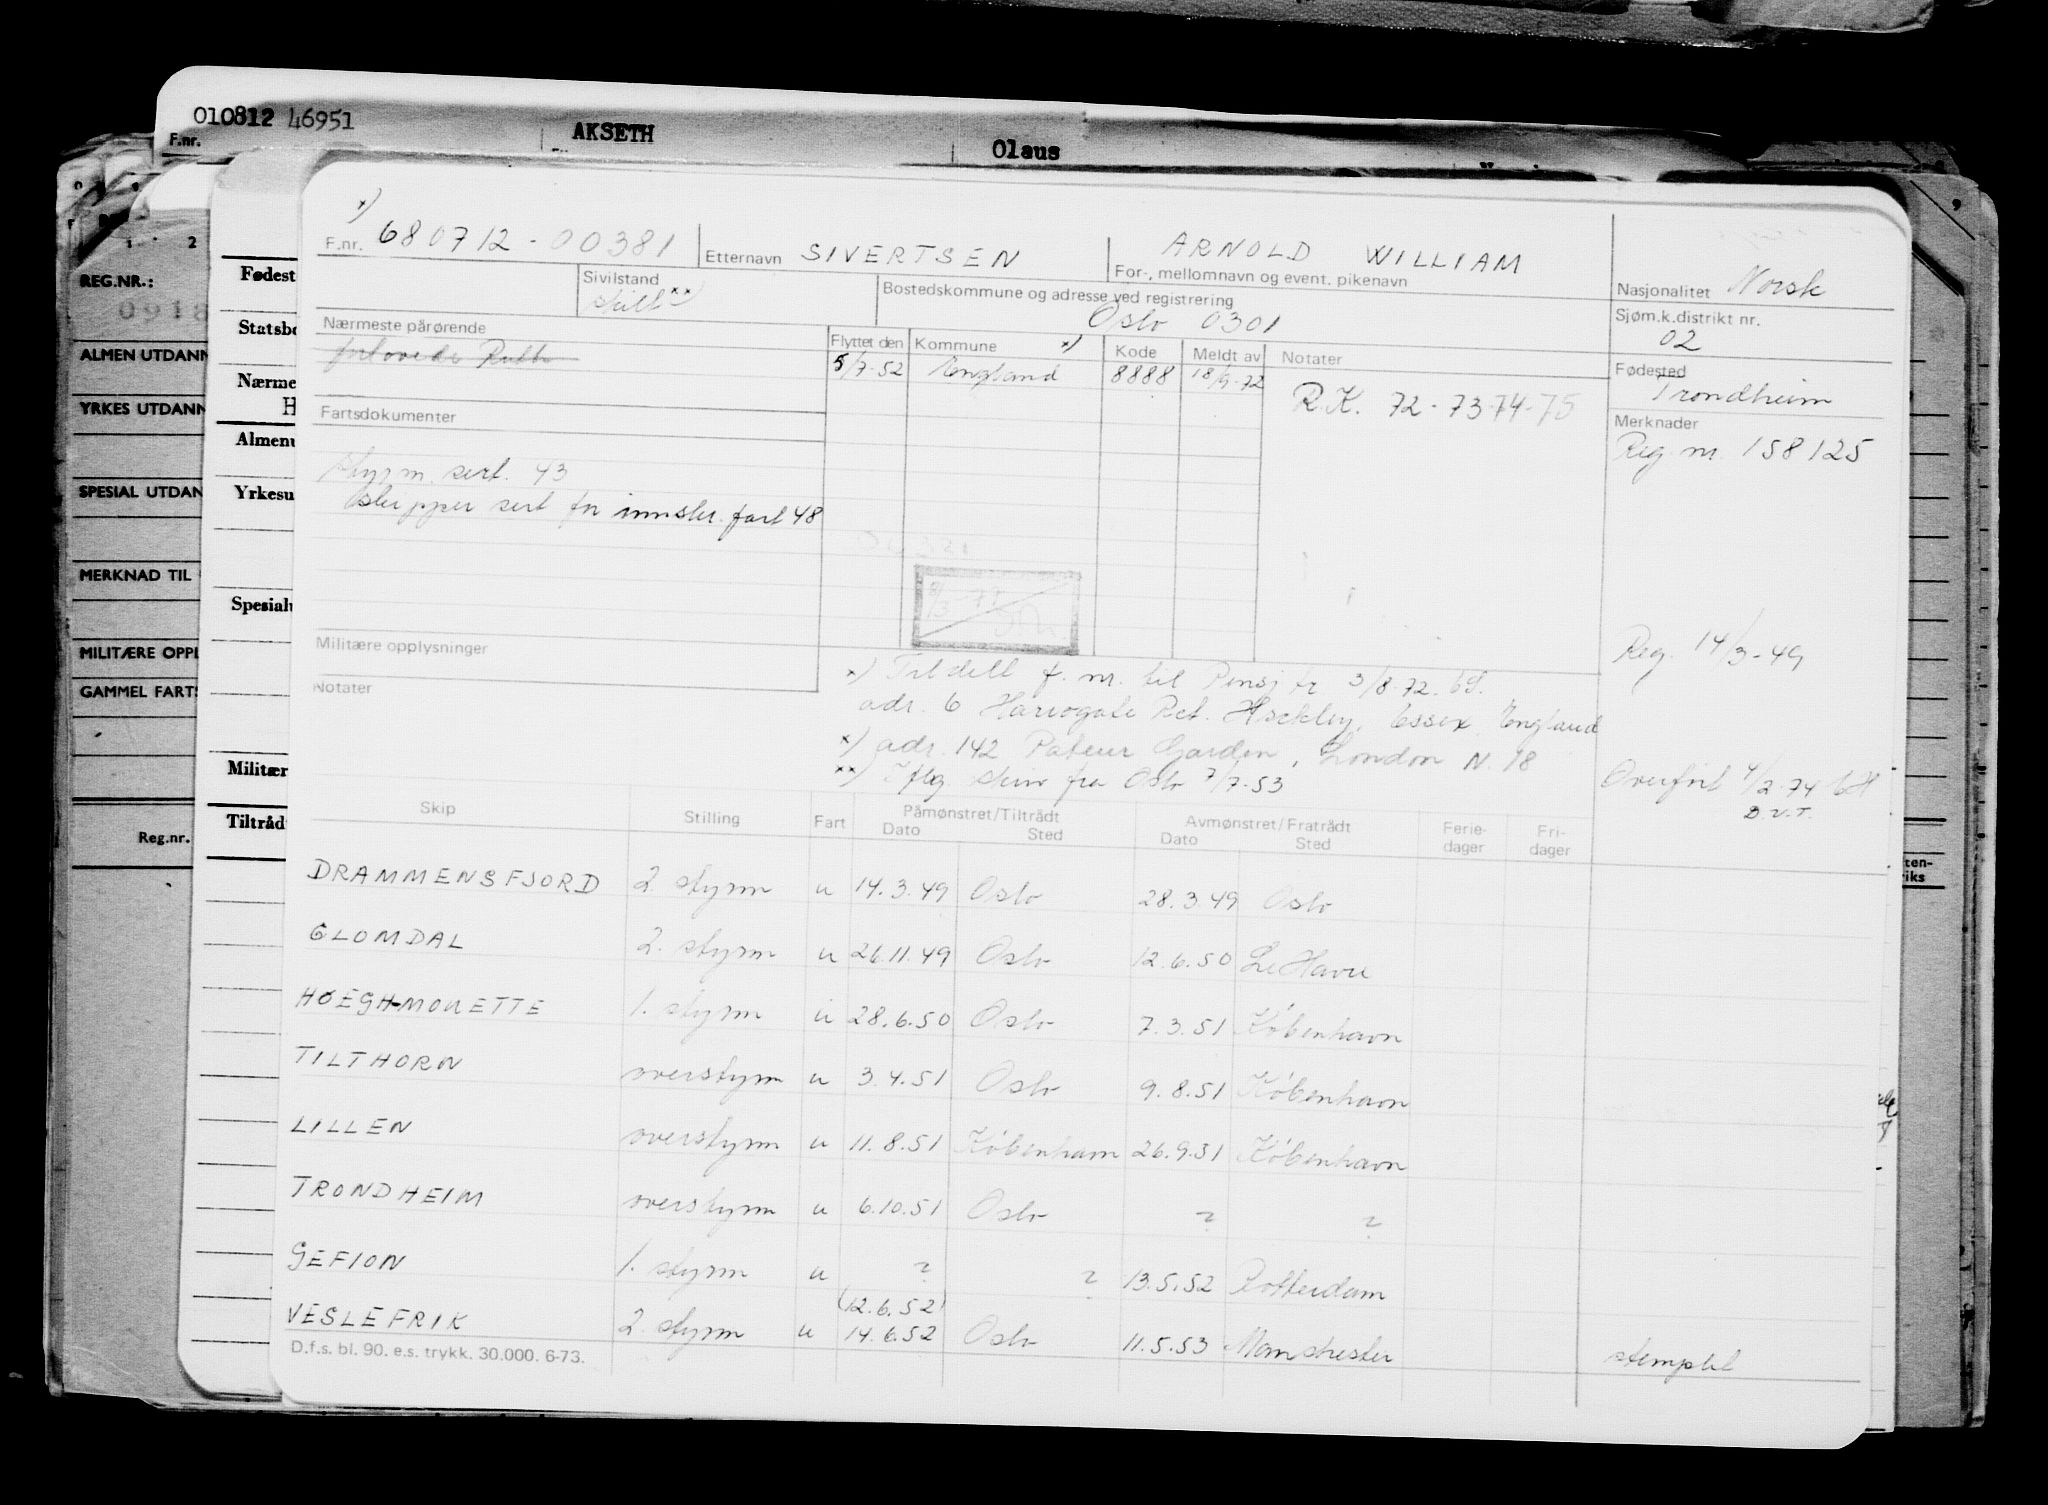 010812 46951
F.nr.
AKSETH
Olaus
REG.NR.:
0918
ALMEN UTDANN
YRKES UTDANN
SPESIAL UTDAN
MERKNAD TIL
MILITÆRE OPPL
GAMMEL FARTS
Reg.nr.
Fødest
Statsbo
Nærme
H
Almenu
Yrkesu
Spesialu
Militær
Tiltråd
x)
F.nr. 680712-00381 Etternavn SIVERTSEN ARNOLD WILLIAM
For-, mellomnavn og event. pikenavn
Nasjonalitet Norsk
Sivilstand
skilt xx)
Bostedskommune og adresse ved registrering
Oslo 0301
Sjøm.k.distrikt nr.
02
Nærmeste pårørende
forlovede Ruth
Flyttet den Kommune x) Kode Meldt av Notater
5/7-52 England 8888 18/9-72
R.K. 72-73-74-75
Fødested
Trondheim
Fartsdokumenter
styrm. sert. 43
skipper sert for innskr. fart 48
Merknader
Reg. nr. 158125
8/3-79
Reg. 14/3-49
Militære opplysninger
Notater
x) Tildelt f. nr. til Pensj tr 3/8-72.
adr. 6 Harrogate Rd. Hockley, Essex, England
x) adr. 142 Garden, London N. 18
xx) Iflg. skriv fra Oslo 7/7-53
Overført 4/2-74
D.V.T.
Skip Stilling Fart Påmønstret/Tiltrådt Avmønstret/Fratrådt Ferie- Fri-
Dato Sted Dato Sted dager dager
DRAMMENSFJORD 2. styrm u 14.3.49 Oslo 28.3.49 Oslo
GLOMDAL 2. styrm u 26.11.49 Oslo 12.6.50 Le Havre
HØEGH-MOUETTE 1. styrm u 28.6.50 Oslo 7.3.51 København
TILTHORN overstyrm u 3.4.51 Oslo 9.8.51 København
LILLEN overstyrm u 11.8.51 København 26.9.51 København
TRONDHEIM overstyrm u 6.10.51 Oslo ? ?
GEFION 1. styrm u ? ? 13.5.52 Rotterdam
(12.6.52)
VESLEFRIK 2. styrm u 14.6.52 Oslo 11.5.53 Manchester stemplet
D.f.s. bl. 90. e.s. trykk. 30.000. 6-73.
9
ten-
riks